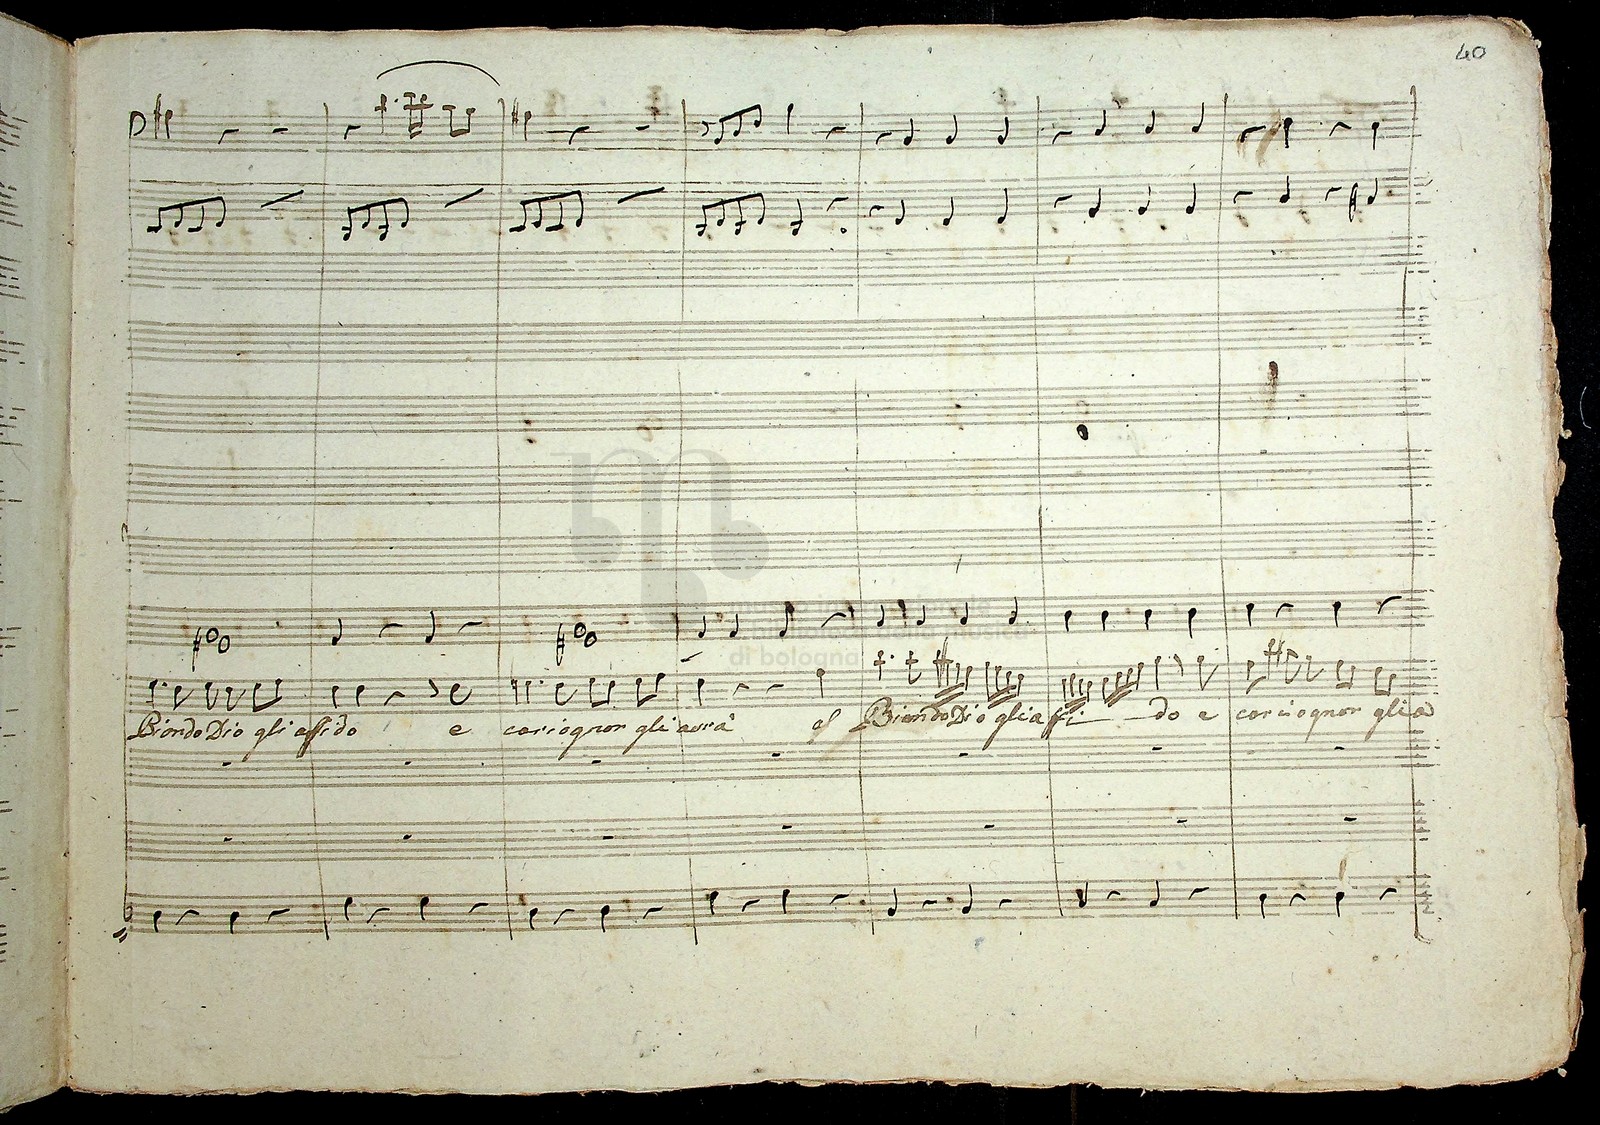 40
museo internazionale
e biblioteca della musica
di bologna
Biondo Dio gli affido e cori ognor gli avrà al Biondo Dio gli affi do e cori ognor gli a